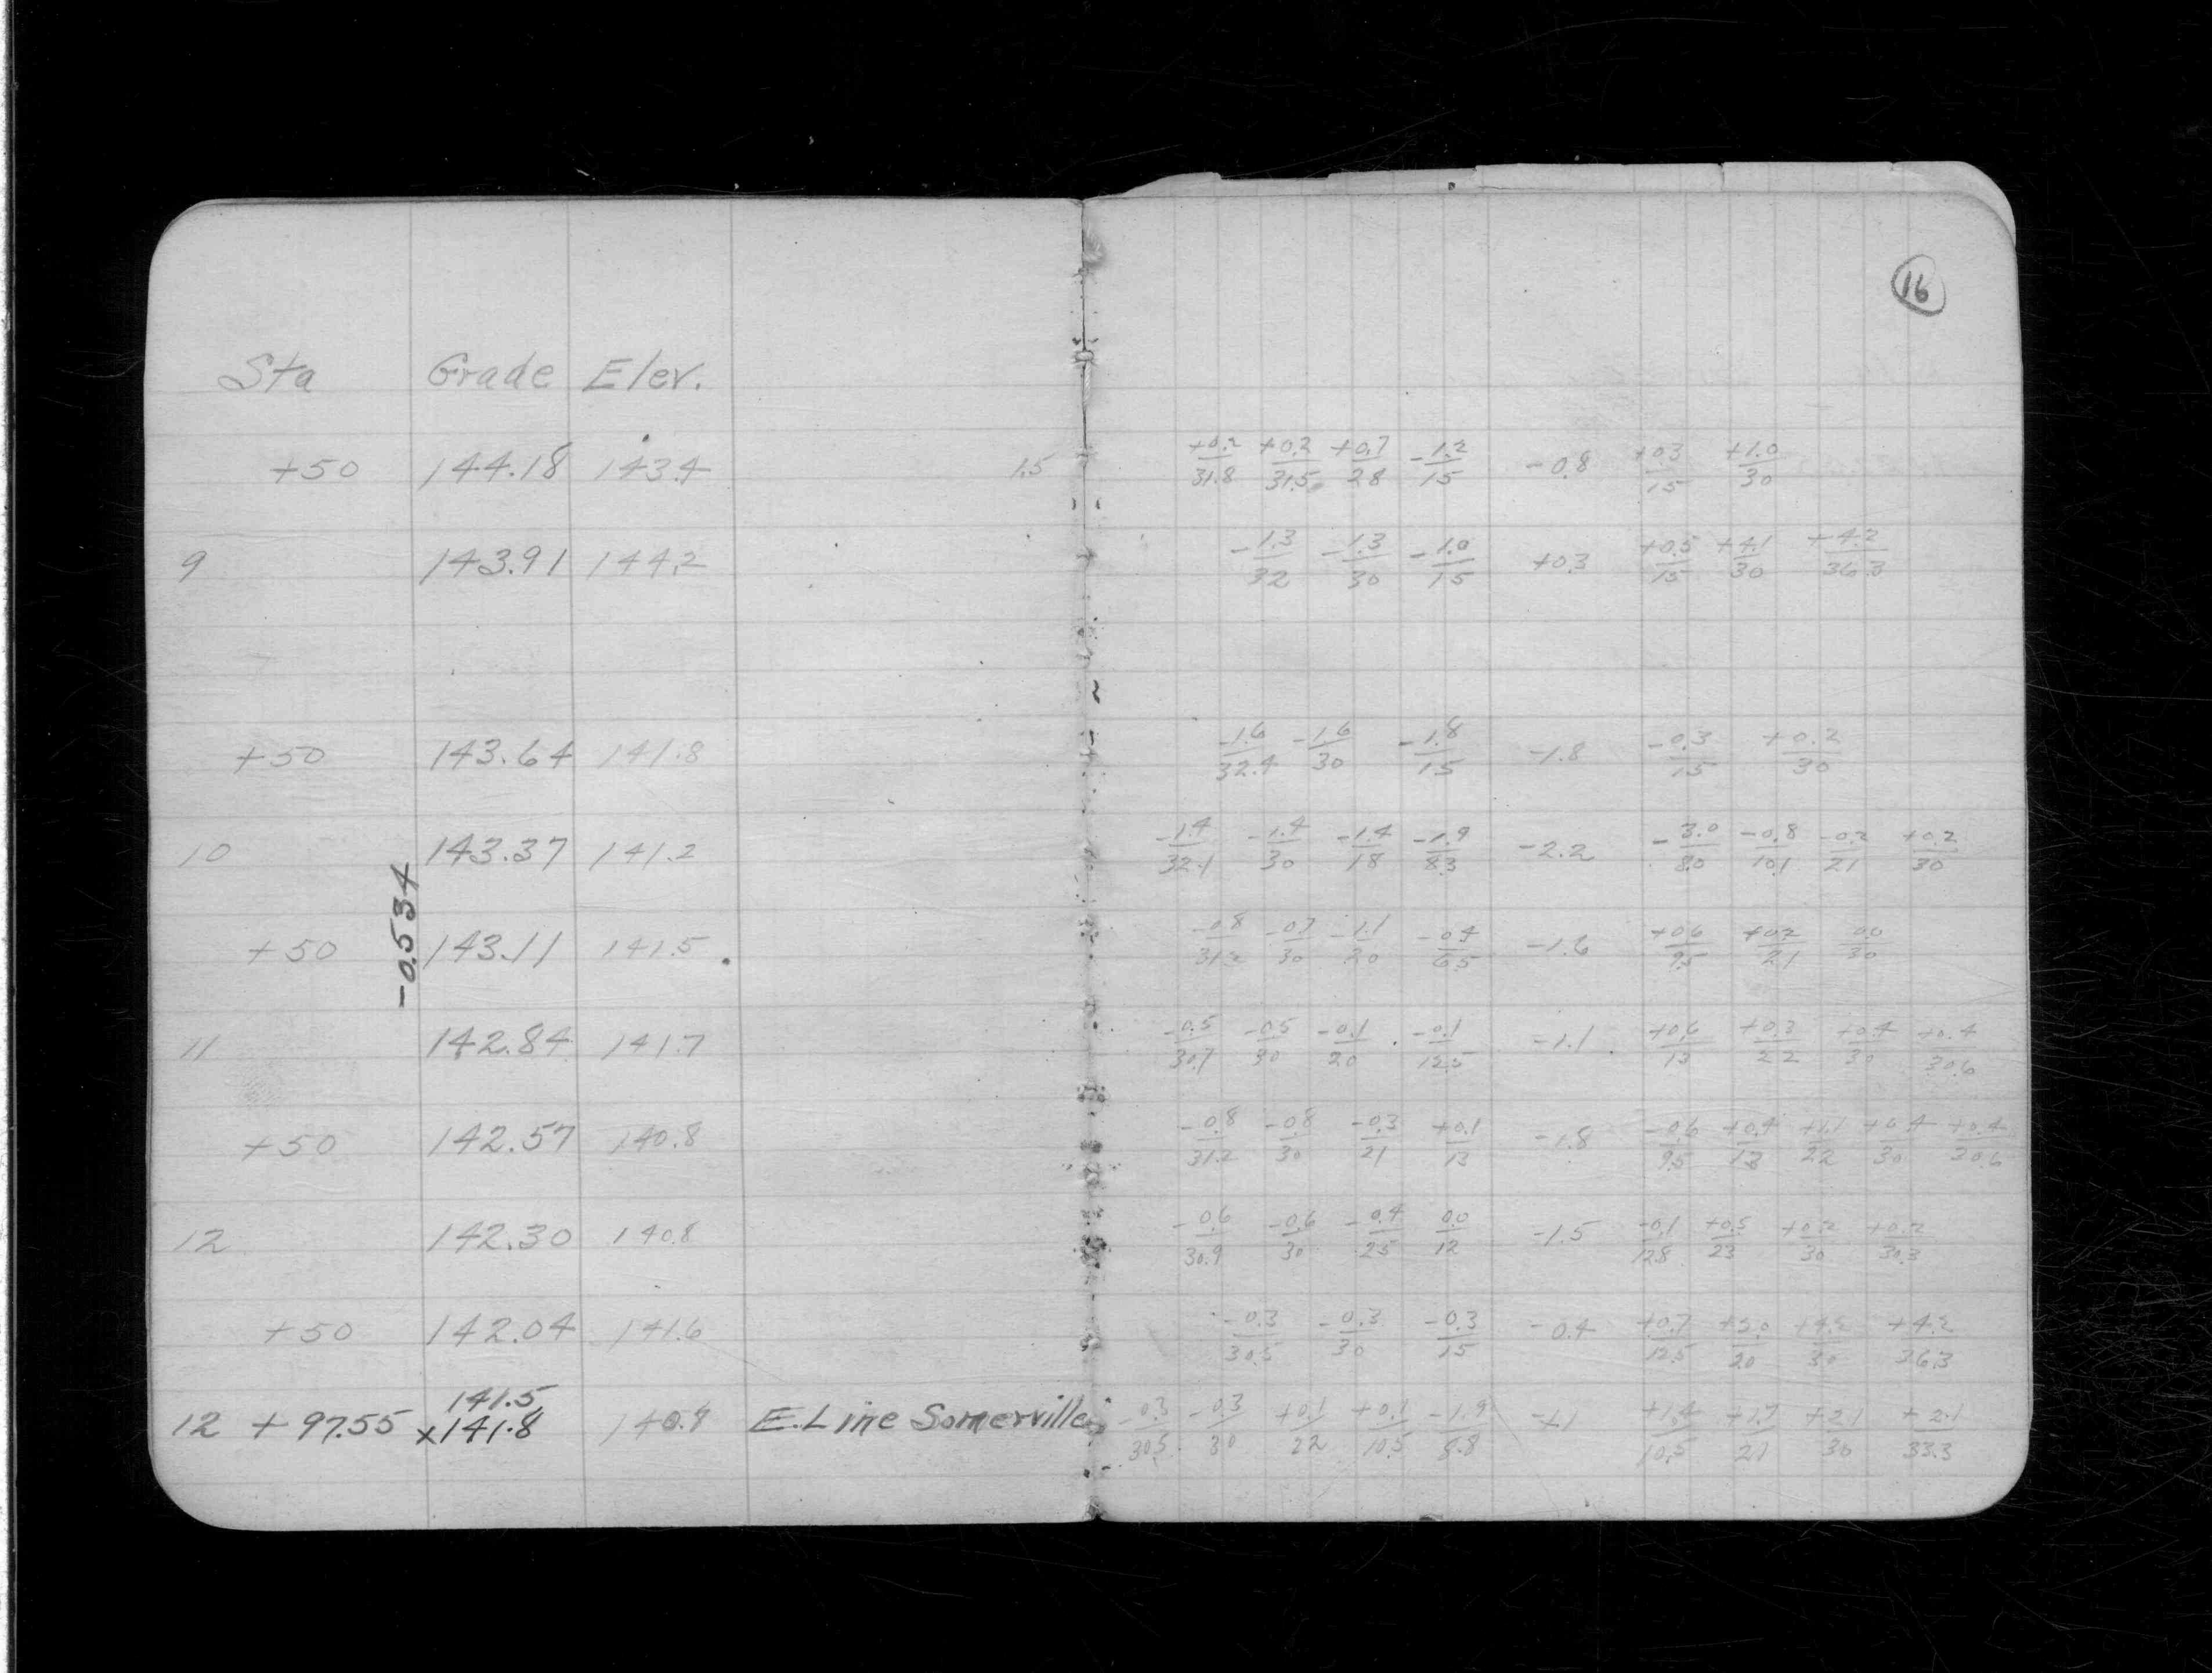 16
Sta Grade Elev.
+50 144.18 143.4 1.5 +0.2/31.8 +0.2/31.5 +0.7/28 -1.2/15 -0.8 +0.3/15 +1.0/30
9 143.91 144.2 -1.3/32 -1.3/30 -1.0/15 +0.3 +0.5/15 +4.1/30 +4.2/36.3
+50 143.64 141.8 -1.6/32.4 -1.6/30 -1.8/15 -1.8 -0.3/15 +0.2/30
10 143.37 141.2 -1.4/32.1 -1.4/30 -1.4/18 -1.9/8.3 -2.2 -3.0/8.0 -0.8/10.1 -0.2/21 +0.2/30
-0.534
+50 143.11 141.5 -0.8/31.2 -0.7/30 -1.1/20 -0.4/6.5 -1.6 +0.6/9.5 +0.2/21 0.0/30
11 142.84 141.7 -0.5/30.7 -0.5/30 -0.1/20 -0.1/12.5 -1.1 +0.6/13 +0.3/22 +0.4/30 +0.4/30.6
+50 142.57 140.8 -0.8/31.2 -0.8/30 -0.3/21 +0.1/13 -1.8 -0.6/9.5 +0.4/13 +1.1/22 +0.4/30 +0.4/30.6
12 142.30 140.8 -0.6/30.9 -0.6/30 -0.4/25 0.0/12 -1.5 -0.1/12.8 +0.5/23 +0.2/30 +0.2/30.3
+50 142.04 141.6 -0.3/30.5 -0.3/30 -0.3/15 -0.4 +0.7/12.5 +3.0/20 +4.2/30 +4.2/36.3
141.5
12 + 97.55 x141.8 E. Line Somerville -0.3/30.5 -0.3/30 +0.1/22 +0.1/10.5 -1.9/8.8 +1.4/10.5 +1.7/21 +2.1/30 +2.1/33.3